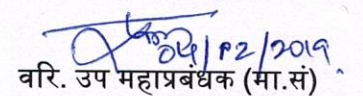 04/12/2019
वरि. उप महाप्रबंधक (मा.सं)